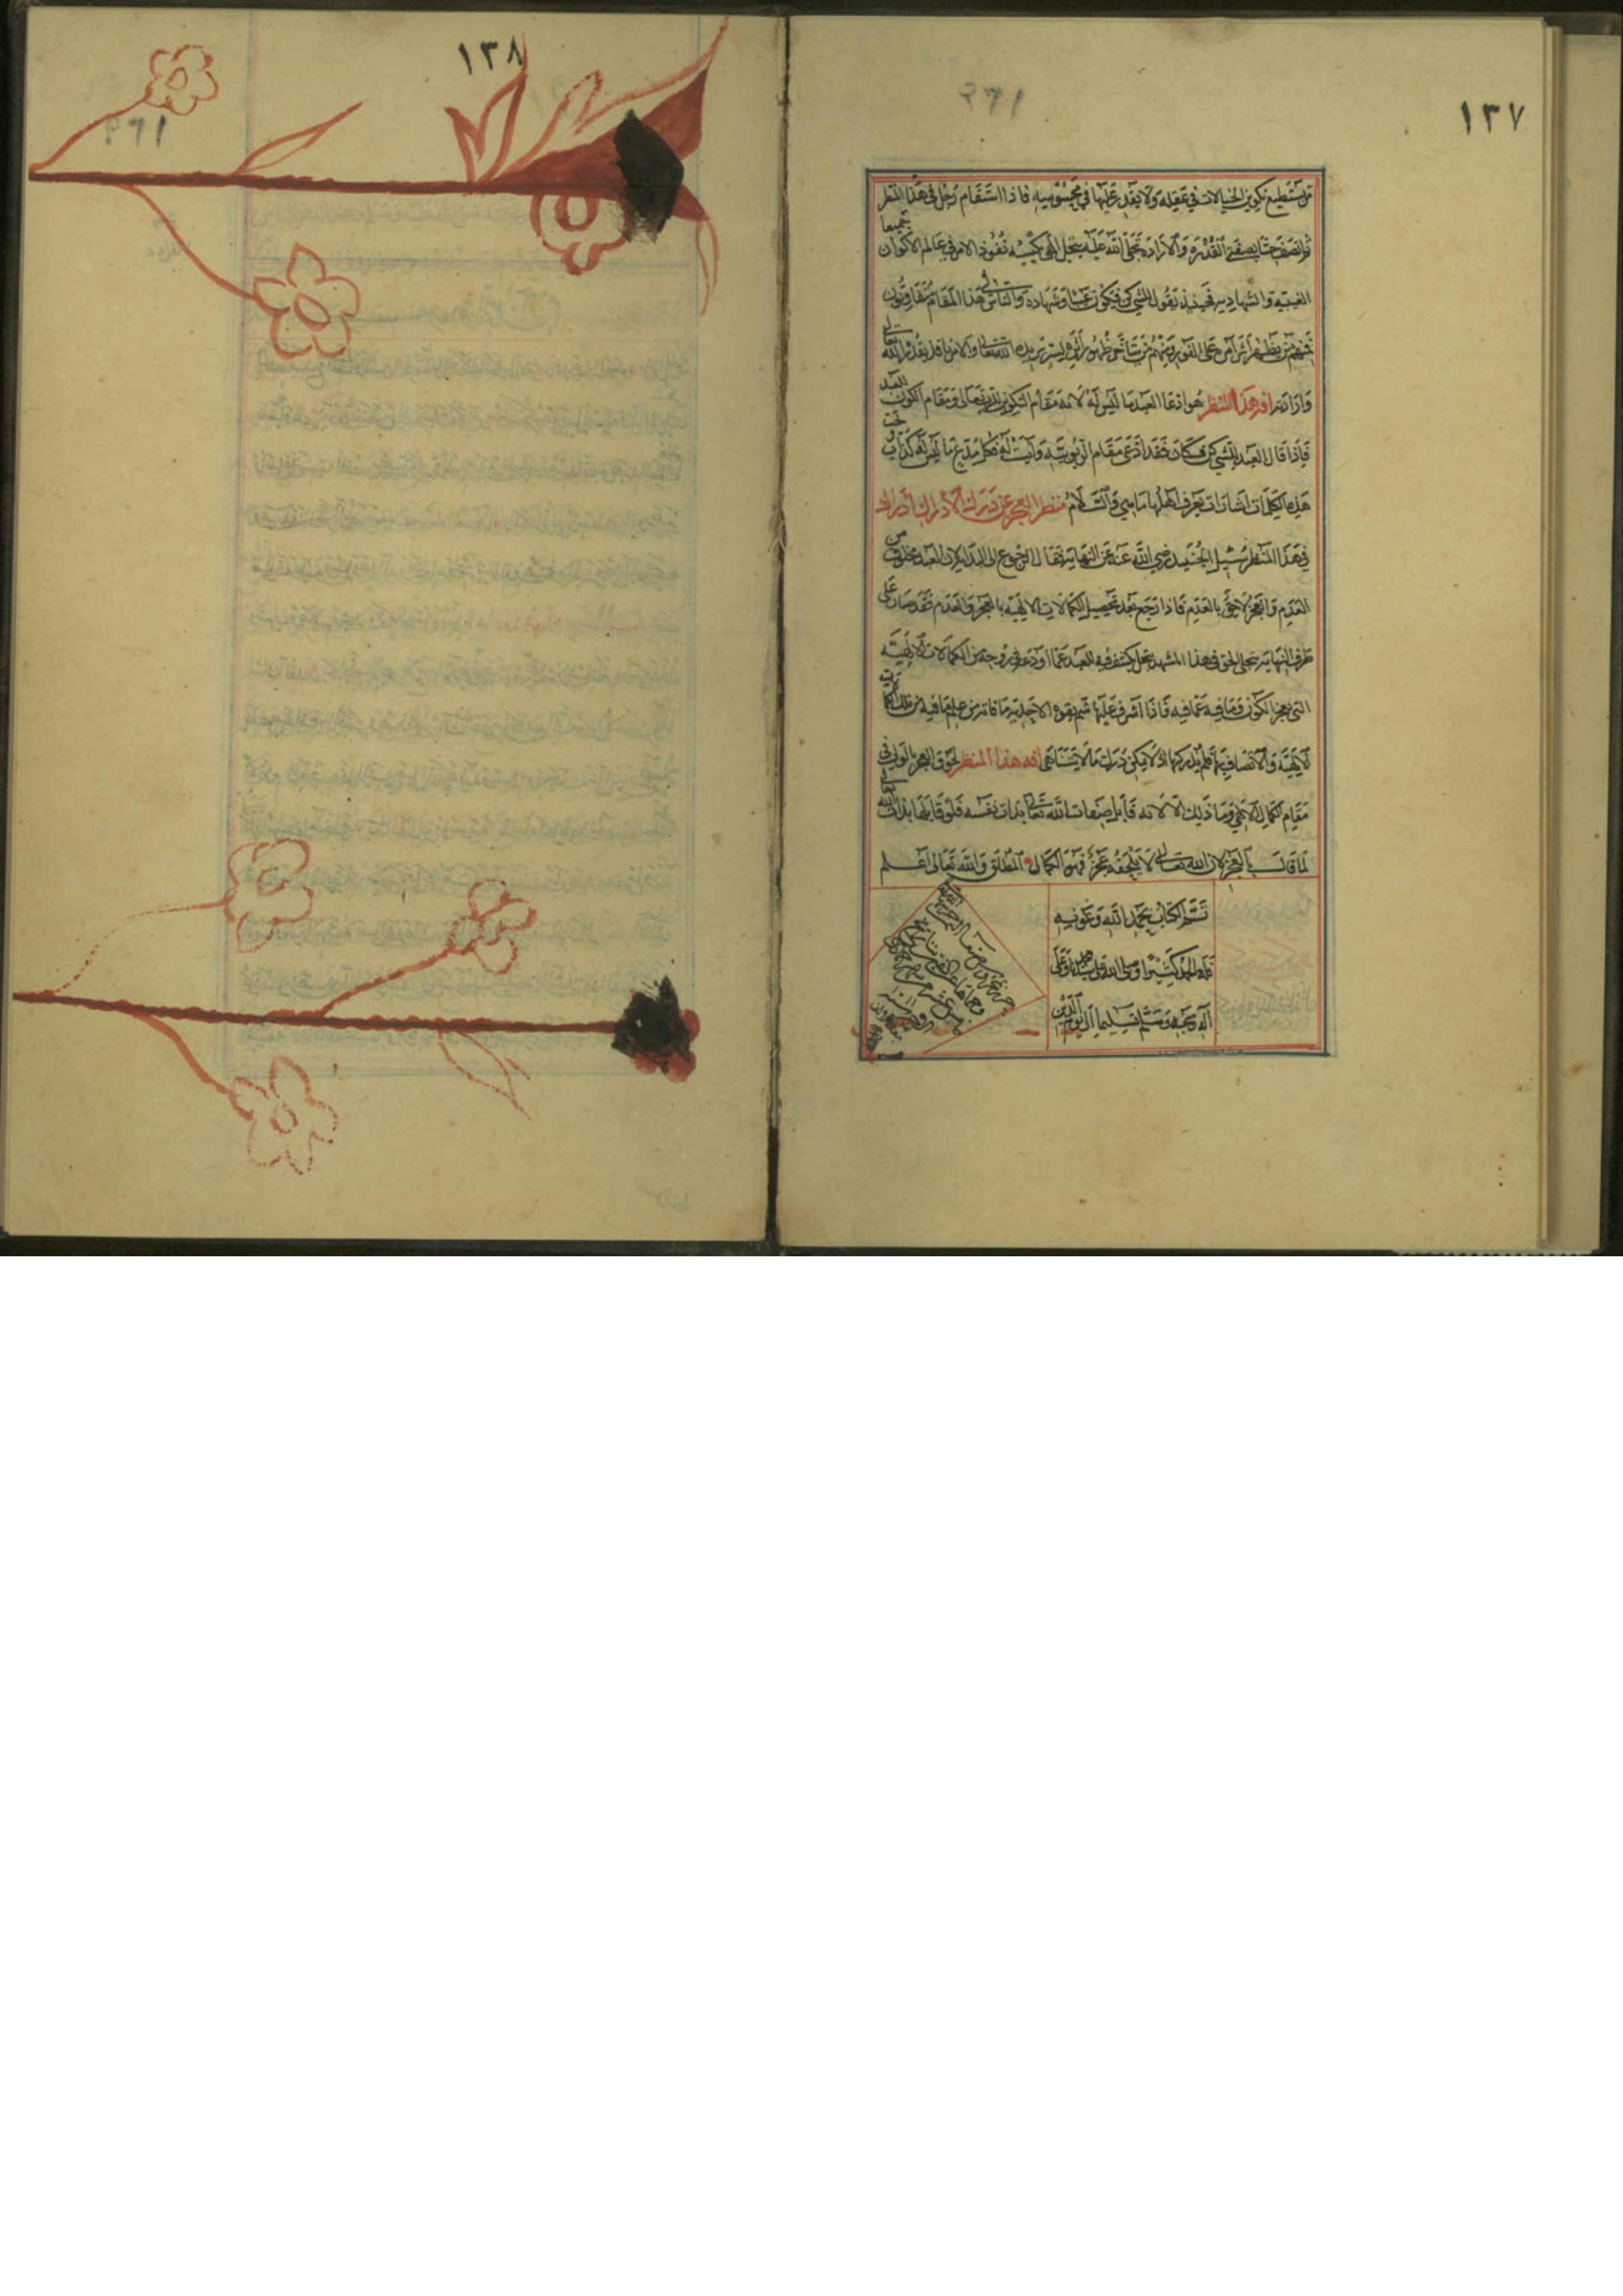 ١٣٧
من يستطيع تكوين الخيالات في عقله ولا يقدر عليها في محسوسه فاذا استقام رجل في هذا المنظر
ثم اتصف حقا بصفتي القدرة والارادة تجلى الله عليه بتجل الهي يكسبه نفوذ الامر في عالم الاكوان جميعا
الغيبية والشهادية فحينئذ يقول للشي كن فيكون غيبا وشهادة والناس في هذا المقام متفاوتون
فمنهم من يظهر اثر امره على الفور ومنهم من يتأخر ظهور اثر الله تعالى والامر نافذ بقدرة الله تعالى
وارادته افة هذا المنظر هو ادعا العبد ما ليس له لانه مقام التكوين لله تعالى ومقام العبد الكون
فاذا قال العبد للشي كن فكان فقد ادعى مقام الربوبية وليست له فكل مدع ما ليس له كذاب وتحت
هذه الكلمات اشارات يعرف اهلها ما هي والسلام منظر العجز عن درك الادراك ادراك
في هذا المنظر سئل الجنيد رضي الله عنه عن النهاية فقال الرجوع الى البداية لان العبد مخلوق من
العدم والعجز لاحق بالعدم فاذا رجع بعد تحصيل الكمالات الالهية بالعجز والعدم فقد صار على
طرف النهاية يتجلى الحق في هذا المشهد بتجل يكشف فيه للعبد عما اودع في روحه من الكمالات الالهية
التي يعجز الكون وما فيه عما فيه فاذا اشرف عليها شم بقوة الاحدية ما فاته من علم ما فيه من تلك الكمالات
الالهية والاتصاف بها فلم يدركها اذ لا يمكن درك ما لا يتناهى افه هذا المنظر لحوق العجز بالولي في
مقام الكمال الالهي وما ذلك الا لانه قابل صفات الله تعالى بذات نفسه فلو قابلها بذات الله تعالى
لما قال بالعجز لان الله تعالى لا يلحقه عجز فهو الكمال المطلق والله تعالى اعلم
تم الكتاب بحمد الله وعونه
فله الحمد كثيرا وصلى الله على سيدنا محمد وعلى
آله وصحبه وسلم تسليما الى يوم الدين
١٣٨